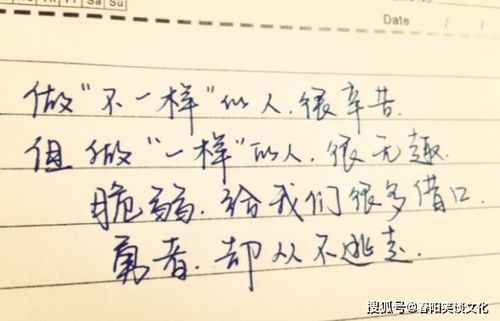 Th Fr Sa Su
Date / /
做“不一样”的人.很辛苦.
但做“一样”的人.很无趣.
脆弱.给我们很多借口.
勇者.却从不逃走.
搜狐号@春阳笑谈文化